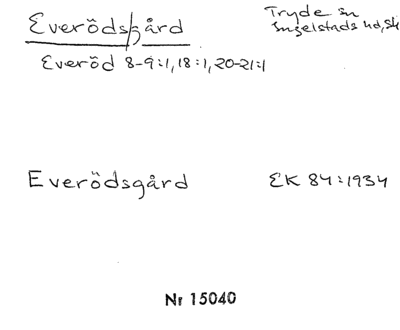 Everöds/gård
Tryde sn
Ingelstads hd, Sk
Everöd 8-9:1, 18:1, 20-21:1
Everödsgård
EK 84:1934
Nr 15040